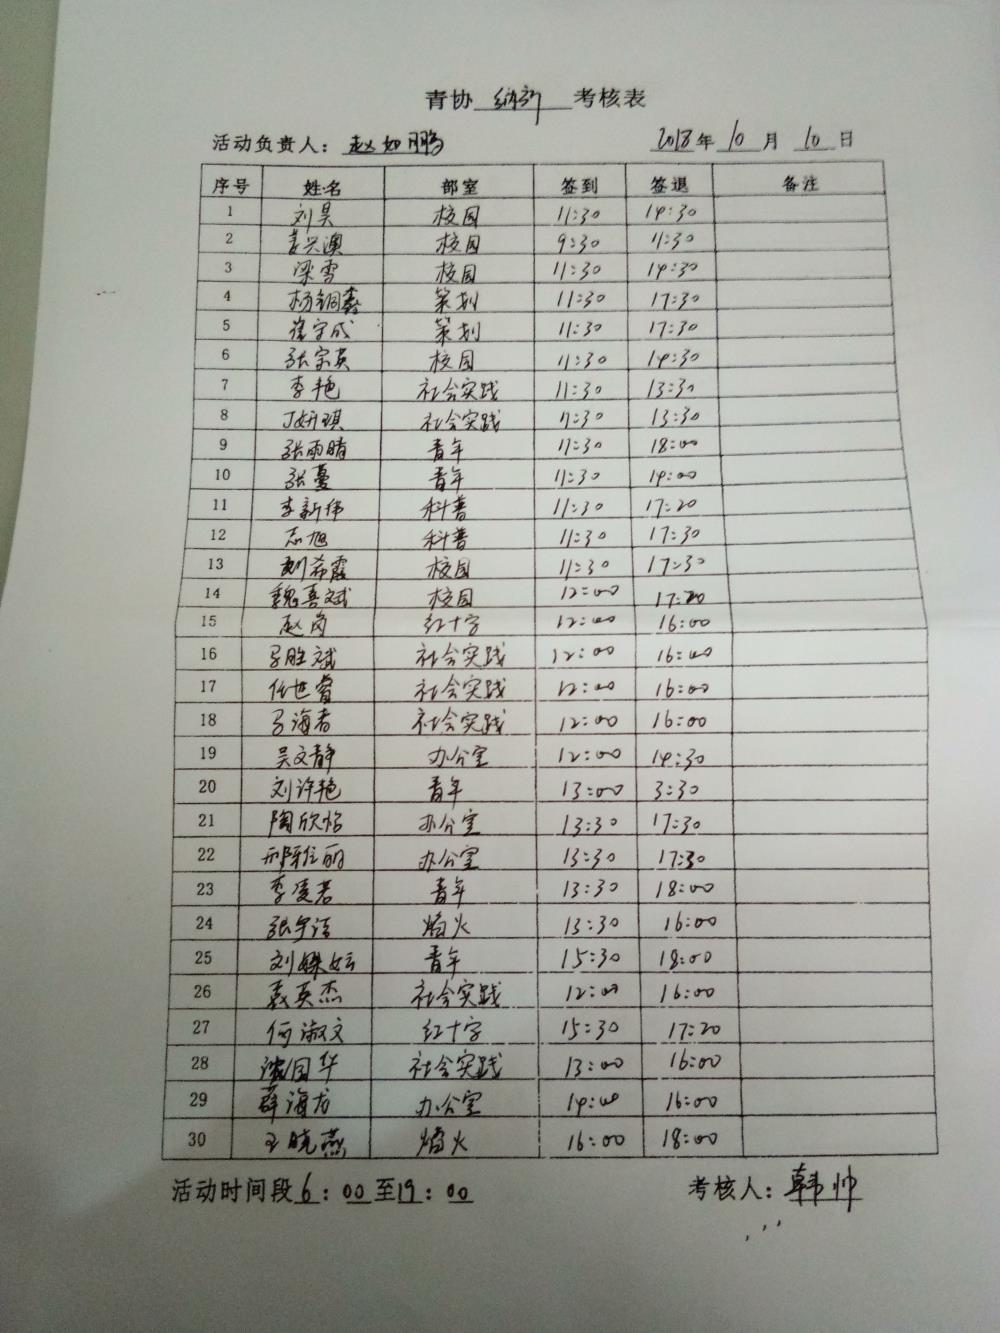 青协 纳新 考核表
活动负责人：赵如鹏 2018年10月10日
序号 姓名 部室 签到 签退 备注
1 刘昊 校园 11:30 14:30
2 姜兴澳 校园 9:30 11:30
3 梁雪 校园 11:30 14:30
4 杨铜鑫 策划 11:30 17:30
5 徐宇成 策划 11:30 17:30
6 张宗英 校园 11:30 14:30
7 李艳 社会实践 11:30 13:30
8 丁妍琪 社会实践 11:30 13:30
9 张雨晴 青年 11:30 18:00
10 张蔓 青年 11:30 14:00
11 李新伟 科普 11:30 17:20
12 志旭 科普 11:30 17:30
13 刘希霞 校园 11:30 17:30
14 魏喜斌 校园 12:00 17:20
15 赵岗 红十字 12:00 16:00
16 马胜斌 社会实践 12:00 16:00
17 任世睿 社会实践 12:00 16:00
18 马海者 社会实践 12:00 16:00
19 吴文静 办公室 12:00 14:30
20 刘许艳 青年 13:00 3:30
21 陶欣怡 办公室 13:30 17:30
22 邢 丽 办公室 13:30 17:30
23 李凌若 青年 13:30 18:00
24 张宇洁 焰火 13:30 16:00
25 刘姝妘 青年 15:30 18:00
26 聂英杰 社会实践 12:00 16:00
27 何淑文 红十字 15:30 17:20
28 国华 社会实践 13:00 16:00
29 薛海龙 办公室 14:00 16:00
30 王晓燕 焰火 16:00 18:00
活动时间段6：00至19：00 考核人：韩帅